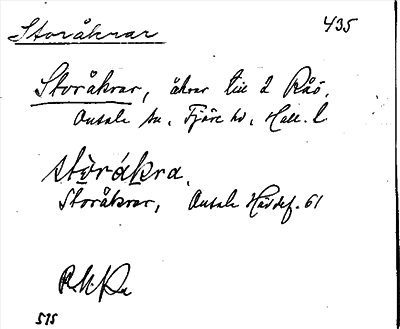 Storåkrar 435
Storåkrar, åkrar till 2 Råö.
Onsala sn, Fjäre hd, Hall. l.
stòråkra.
Storåkrar, Onsala Häddef. 61
515